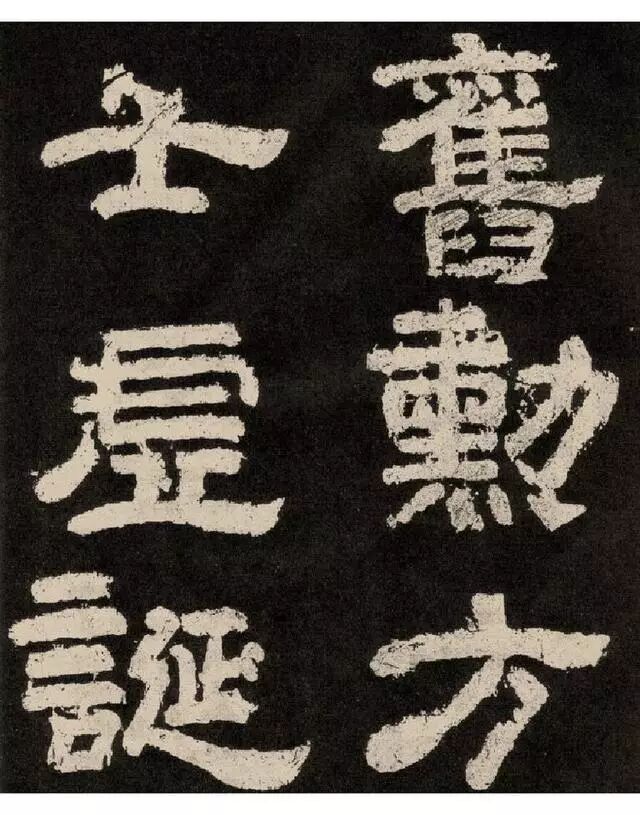 舊勳方
士虛誕